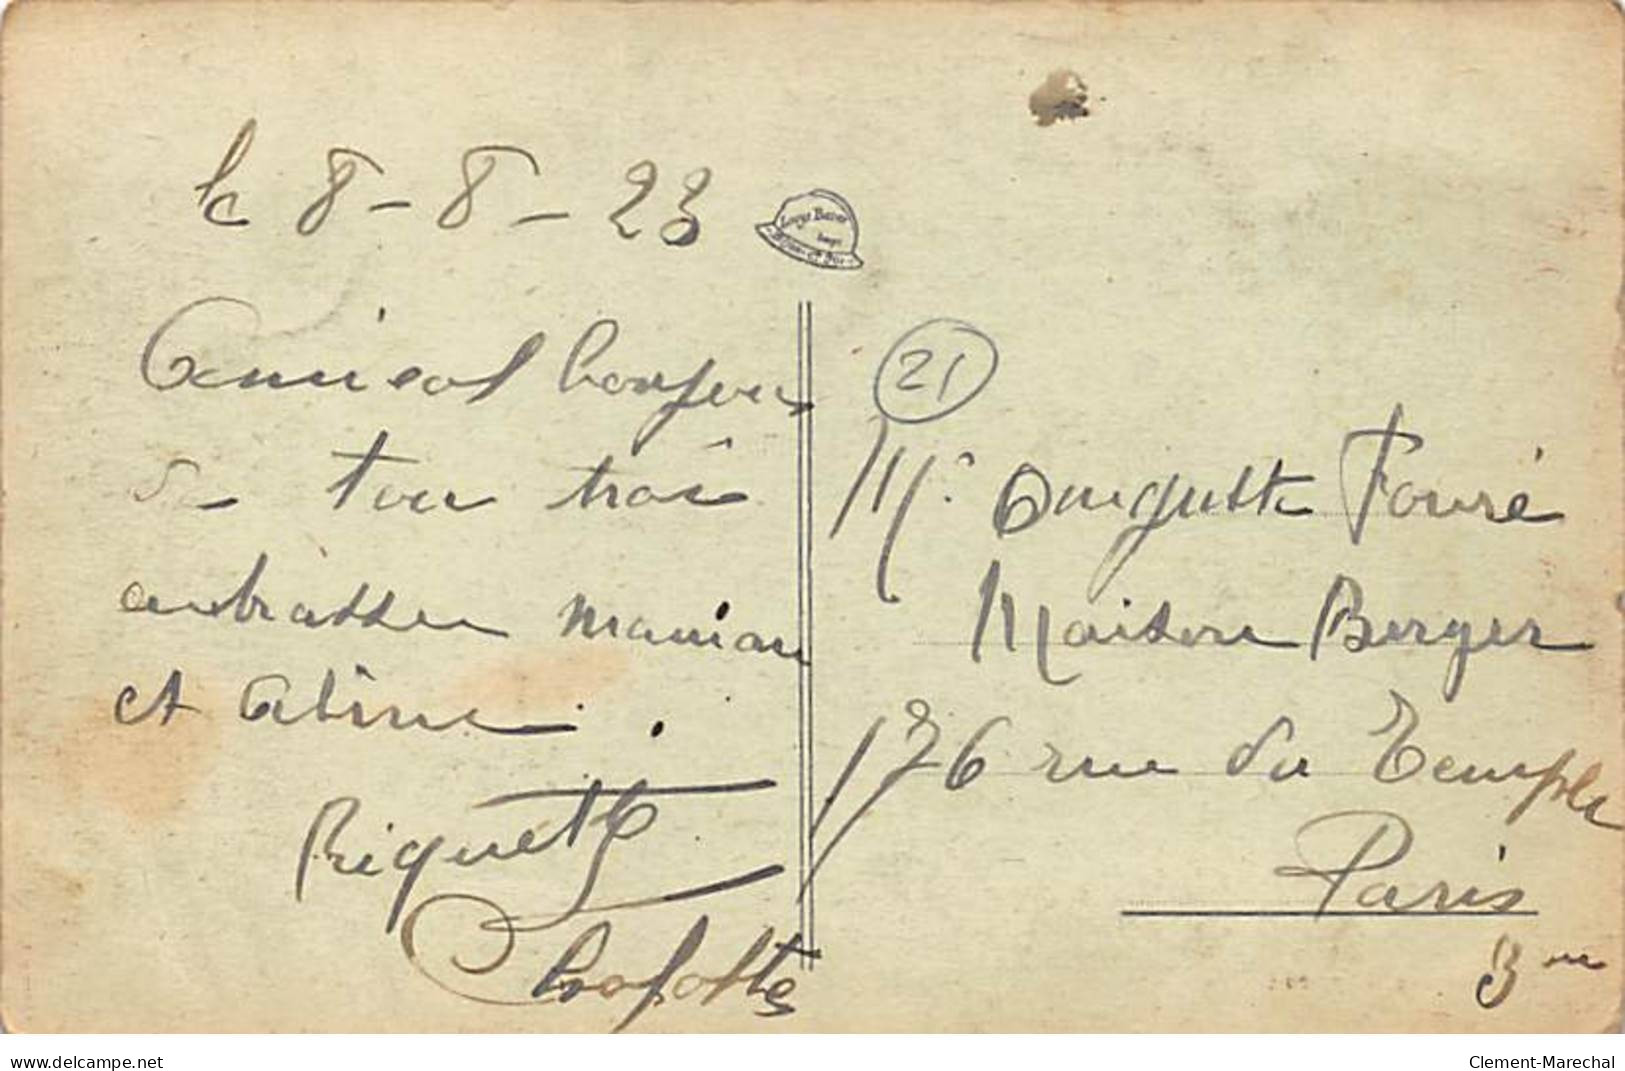 le 8-8-23
Amical bonjour
de tou trois
embrasser maman
et Aline.
Riquette
Louys Bauer
21
Mr Auguste Fouré
Maison Berger
176 rue du Temple
Paris
3me
www.delcampe.net
Clement-Marechal